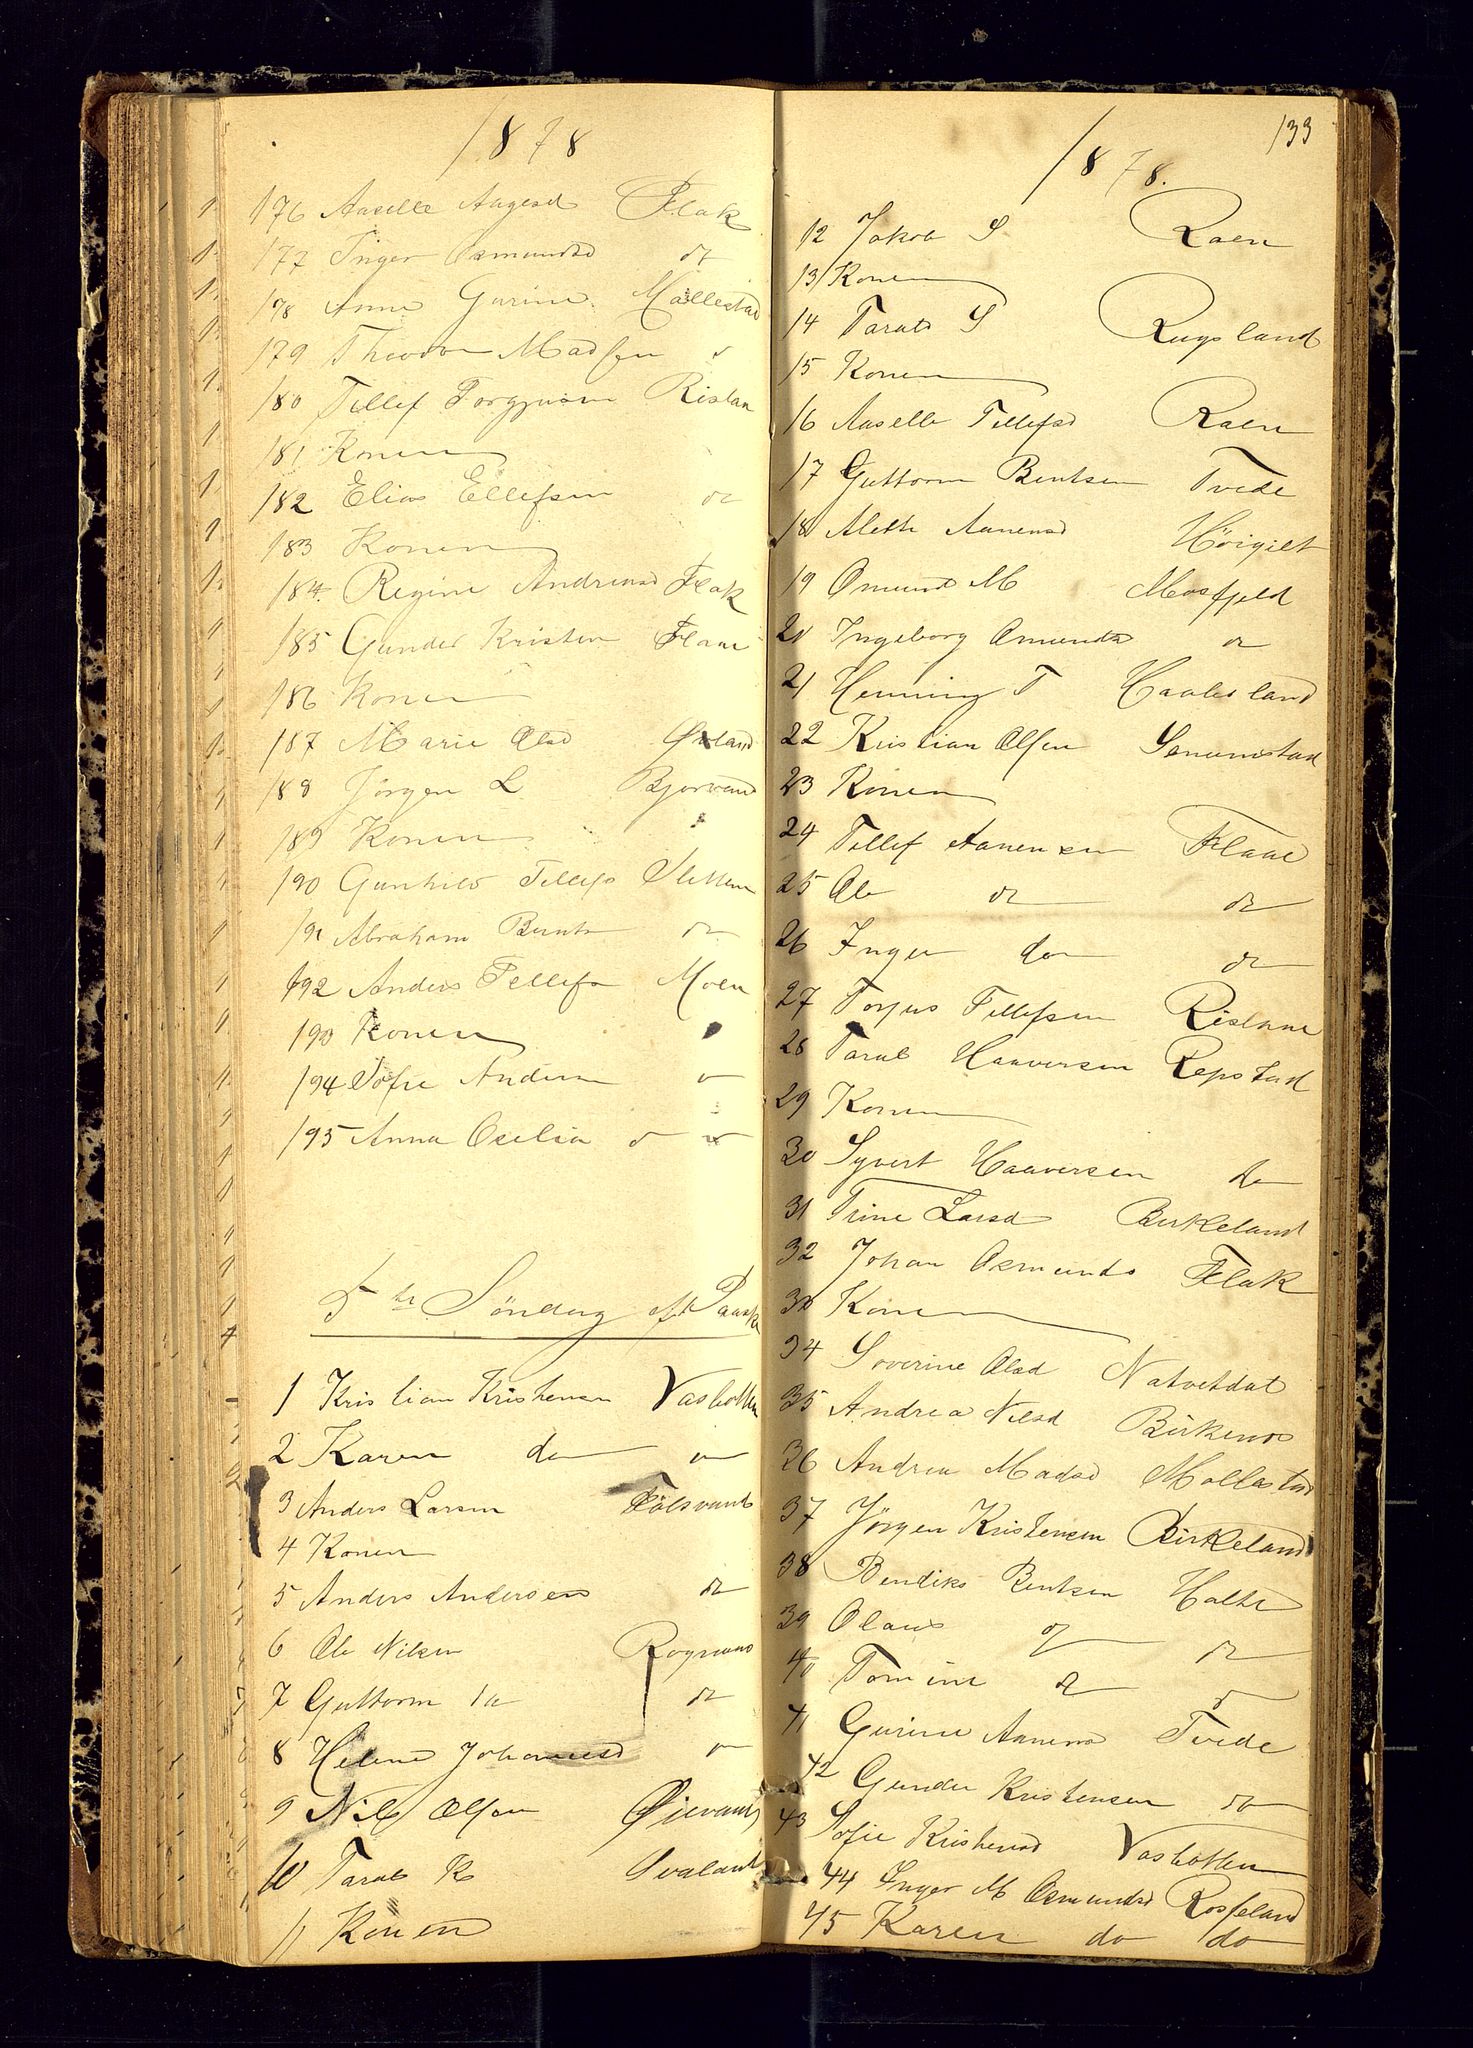 1878
176 Aaselle Aagesd Flak
177 Inger Osmundsd do
178 Anne Gurine Mollestad
179 Theodor Madsen do
180 Tellef Torgjusen Rislan
181 Konen
182 Elias Ellefsen do
183 Konen
184. Regine Andreasd Flak
185 Gunder Kristen Flaae
186 Konen
187 Marie Olsd
188 Jörgen L Bjorvand
189 Konen
190 Gunhild Tellefs Sletten
191 Abraham Bernts do
192 Anders Tellefs Moen
193 Konen
194 Sofie Anders
195 Anna Oselia do
5te Söndag eft Paaske
1 Kristian Kristensen Vasbotten
2 Karen do
3 Anders Larsen Fölsvand
4 Konen
5 Anders Andersen do
6 Ole Nilsen
7 Guttorm do do
8 Helene Johannesd
9 Nils Olsen Øievand
10 Taral K Svaland
11 Konen
133
1878.
12 Jakob S Raen
13 Konen
14 Tarald S Rugsland
15 Konen
16 Aaselle Tellefsd Raen
17 Guttorm Bentsen Tvede
18 Alette Aanensd Höigilt
19 Omund M Mosfjeld
20 Ingeborg Omunds do
21 Henning T Haabesland
22 Kristian Olsen Senumstad
23 Konen
24 Tellef Aanensen Flaae
25 Ole do do
26 Inger do do
27 Torjus Tellefsen Rislaae
28 Taral Haaversen Repstad
29 Konen
30 Syvert Haaversen do
31 Trine Larsd Birkeland
32 Johan Osmunds Flak
33 Konen
34 Soverine Olsd Natvetdal
35 Andrea Nilsd Birkenes
36 Andrea Madsd Mollestad
37 Jörgen Kristensen Birkeland
38 Bendiks Bentsen Holte
39 Olaus do do
40 Tomine do do
41 Gurine Aanensd Tvede
42 Gunder Kristensen do
43 Sofie Kristensd Vasbotten
44 Inger M Osmundsd Rosseland
45 Karen do do